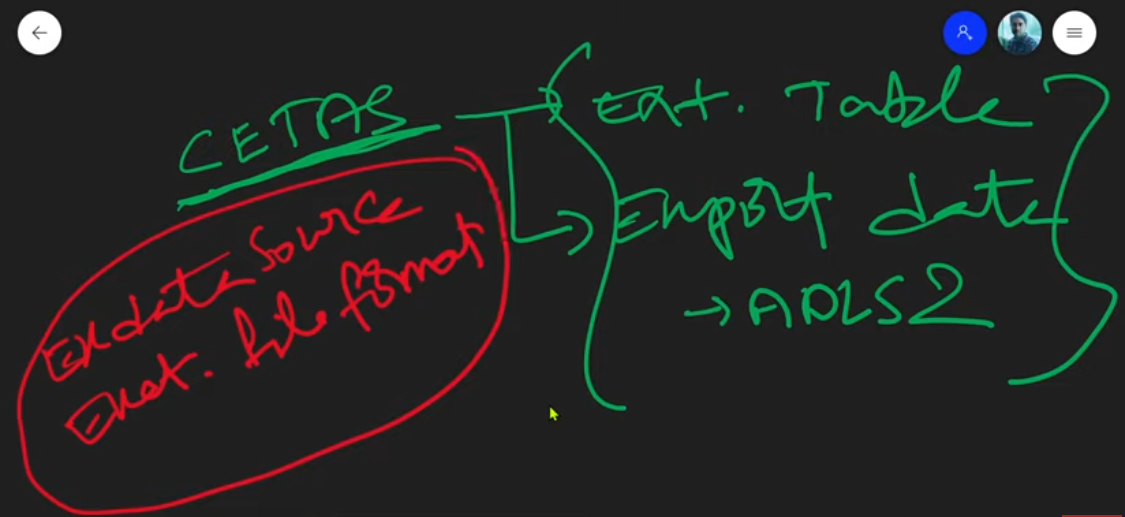 CETAS
Ext. Table
Export data
→ ADLS2
Ex data source
Ext. file format